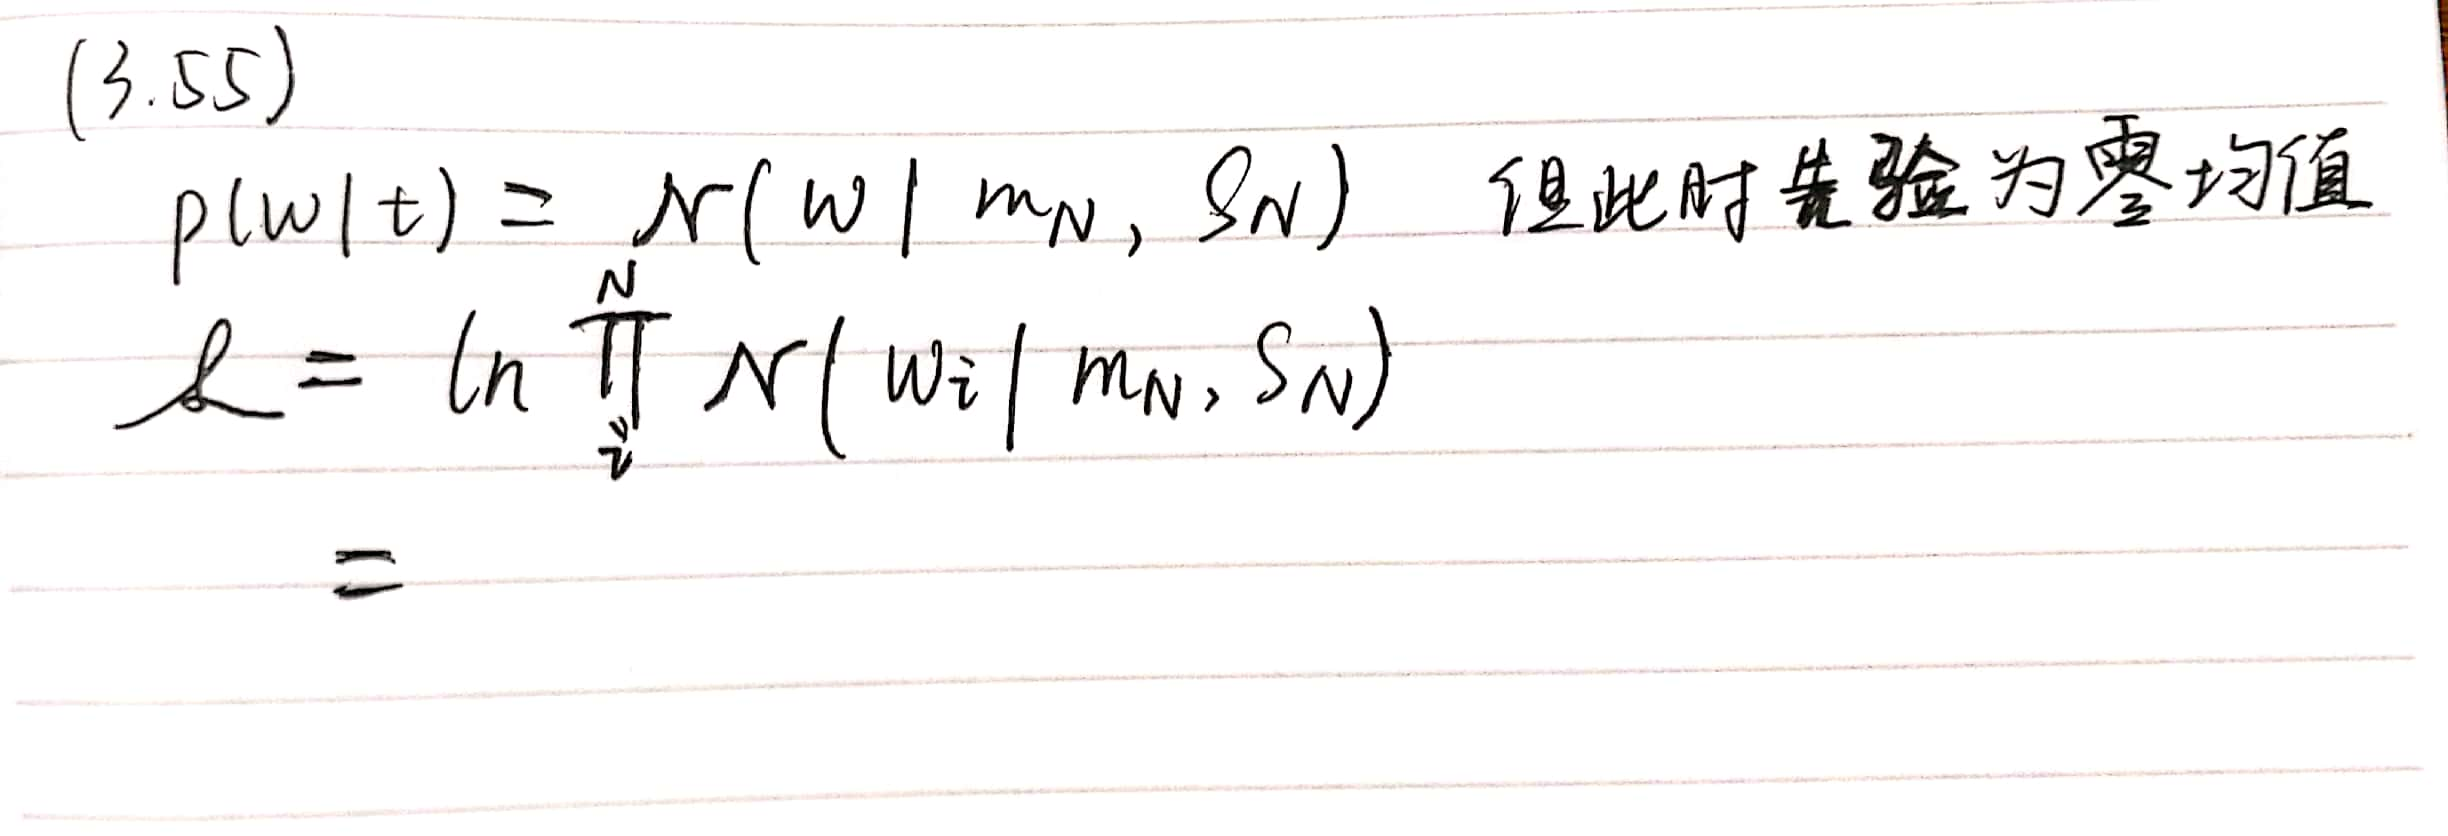 (3.55)
p(w|t) = N(w | m_N, S_N) 但此时先验为零均值
l = ln ∏_i^N N(w_i | m_N, S_N)
=